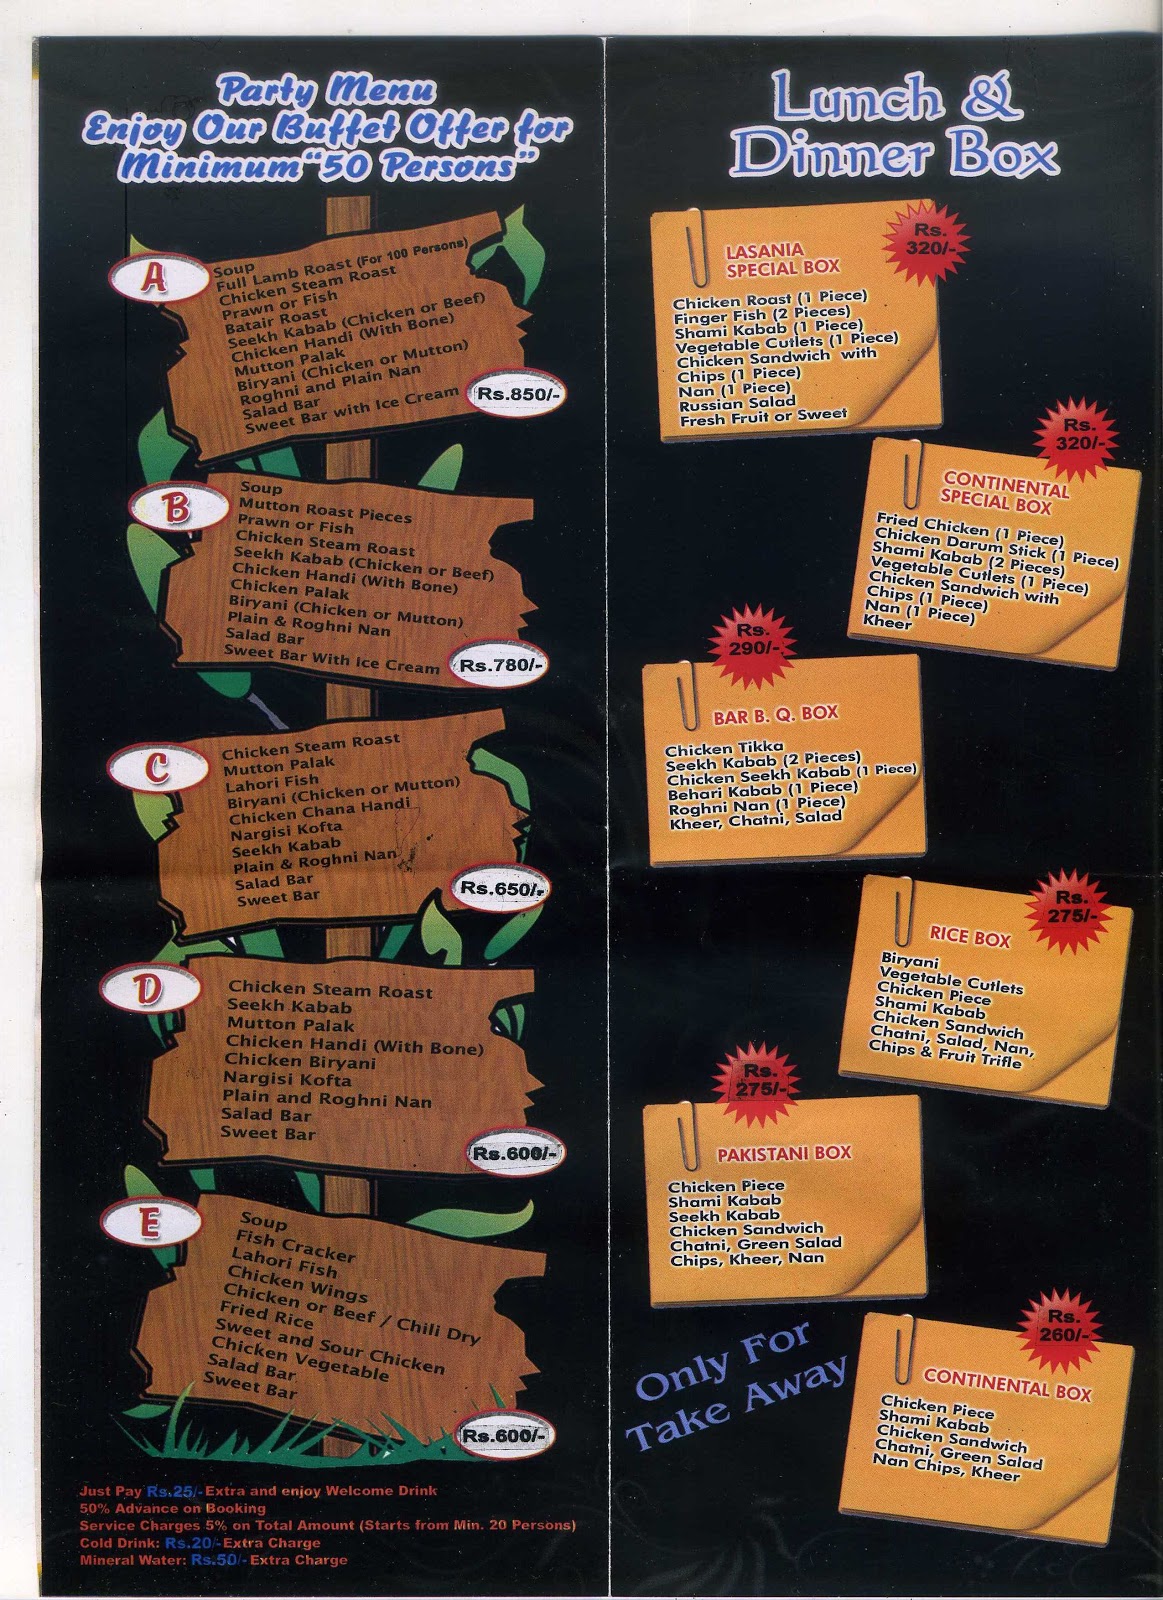 Party Menu
Enjoy Our Buffet Offer for
Minimum "50 Persons"
A
Soup
Full Lamb Roast (For 100 Persons)
Chicken Steam Roast
Prawn or Fish
Batair Roast
Seekh Kabab (Chicken or Beef)
Chicken Handi (With Bone)
Mutton Palak
Biryani (Chicken or Mutton)
Roghni and Plain Nan
Salad Bar
Sweet Bar with Ice Cream
Rs.850/-
B
Soup
Mutton Roast Pieces
Prawn or Fish
Chicken Steam Roast
Seekh Kabab (Chicken or Beef)
Chicken Handi (With Bone)
Chicken Palak
Biryani (Chicken or Mutton)
Plain & Roghni Nan
Salad Bar
Sweet Bar With Ice Cream
Rs.780/-
C
Chicken Steam Roast
Mutton Palak
Lahori Fish
Biryani (Chicken or Mutton)
Chicken Chana Handi
Nargisi Kofta
Seekh Kabab
Plain & Roghni Nan
Salad Bar
Sweet Bar
Rs.650/-
D
Chicken Steam Roast
Seekh Kabab
Mutton Palak
Chicken Handi (With Bone)
Chicken Biryani
Nargisi Kofta
Plain and Roghni Nan
Salad Bar
Sweet Bar
Rs.600/-
E
Soup
Fish Cracker
Lahori Fish
Chicken Wings
Chicken or Beef / Chili Dry
Fried Rice
Sweet and Sour Chicken
Chicken Vegetable
Salad Bar
Sweet Bar
Rs.600/-
Just Pay Rs.25/- Extra and enjoy Welcome Drink
50% Advance on Booking
Service Charges 5% on Total Amount (Starts from Min. 20 Persons)
Cold Drink: Rs.20/- Extra Charge
Mineral Water: Rs.50/- Extra Charge
Lunch &
Dinner Box
Rs.
320/-
LASANIA
SPECIAL BOX
Chicken Roast (1 Piece)
Finger Fish (2 Pieces)
Shami Kabab (1 Piece)
Vegetable Cutlets (1 Piece)
Chicken Sandwich with
Chips (1 Piece)
Nan (1 Piece)
Russian Salad
Fresh Fruit or Sweet
Rs.
320/-
CONTINENTAL
SPECIAL BOX
Fried Chicken (1 Piece)
Chicken Darum Stick (1 Piece)
Shami Kabab (2 Pieces)
Vegetable Cutlets (1 Piece)
Chicken Sandwich with
Chips (1 Piece)
Nan (1 Piece)
Kheer
Rs.
290/-
BAR B. Q. BOX
Chicken Tikka
Seekh Kabab (2 Pieces)
Chicken Seekh Kabab (1 Piece)
Behari Kabab (1 Piece)
Roghni Nan (1 Piece)
Kheer, Chatni, Salad
Rs.
275/-
RICE BOX
Biryani
Vegetable Cutlets
Chicken Piece
Shami Kabab
Chicken Sandwich
Chatni, Salad, Nan,
Chips & Fruit Trifle
Rs.
275/-
PAKISTANI BOX
Chicken Piece
Shami Kabab
Seekh Kabab
Chicken Sandwich
Chatni, Green Salad
Chips, Kheer, Nan
Only For
Take Away
Rs.
260/-
CONTINENTAL BOX
Chicken Piece
Shami Kabab
Chicken Sandwich
Chatni, Green Salad
Nan Chips, Kheer